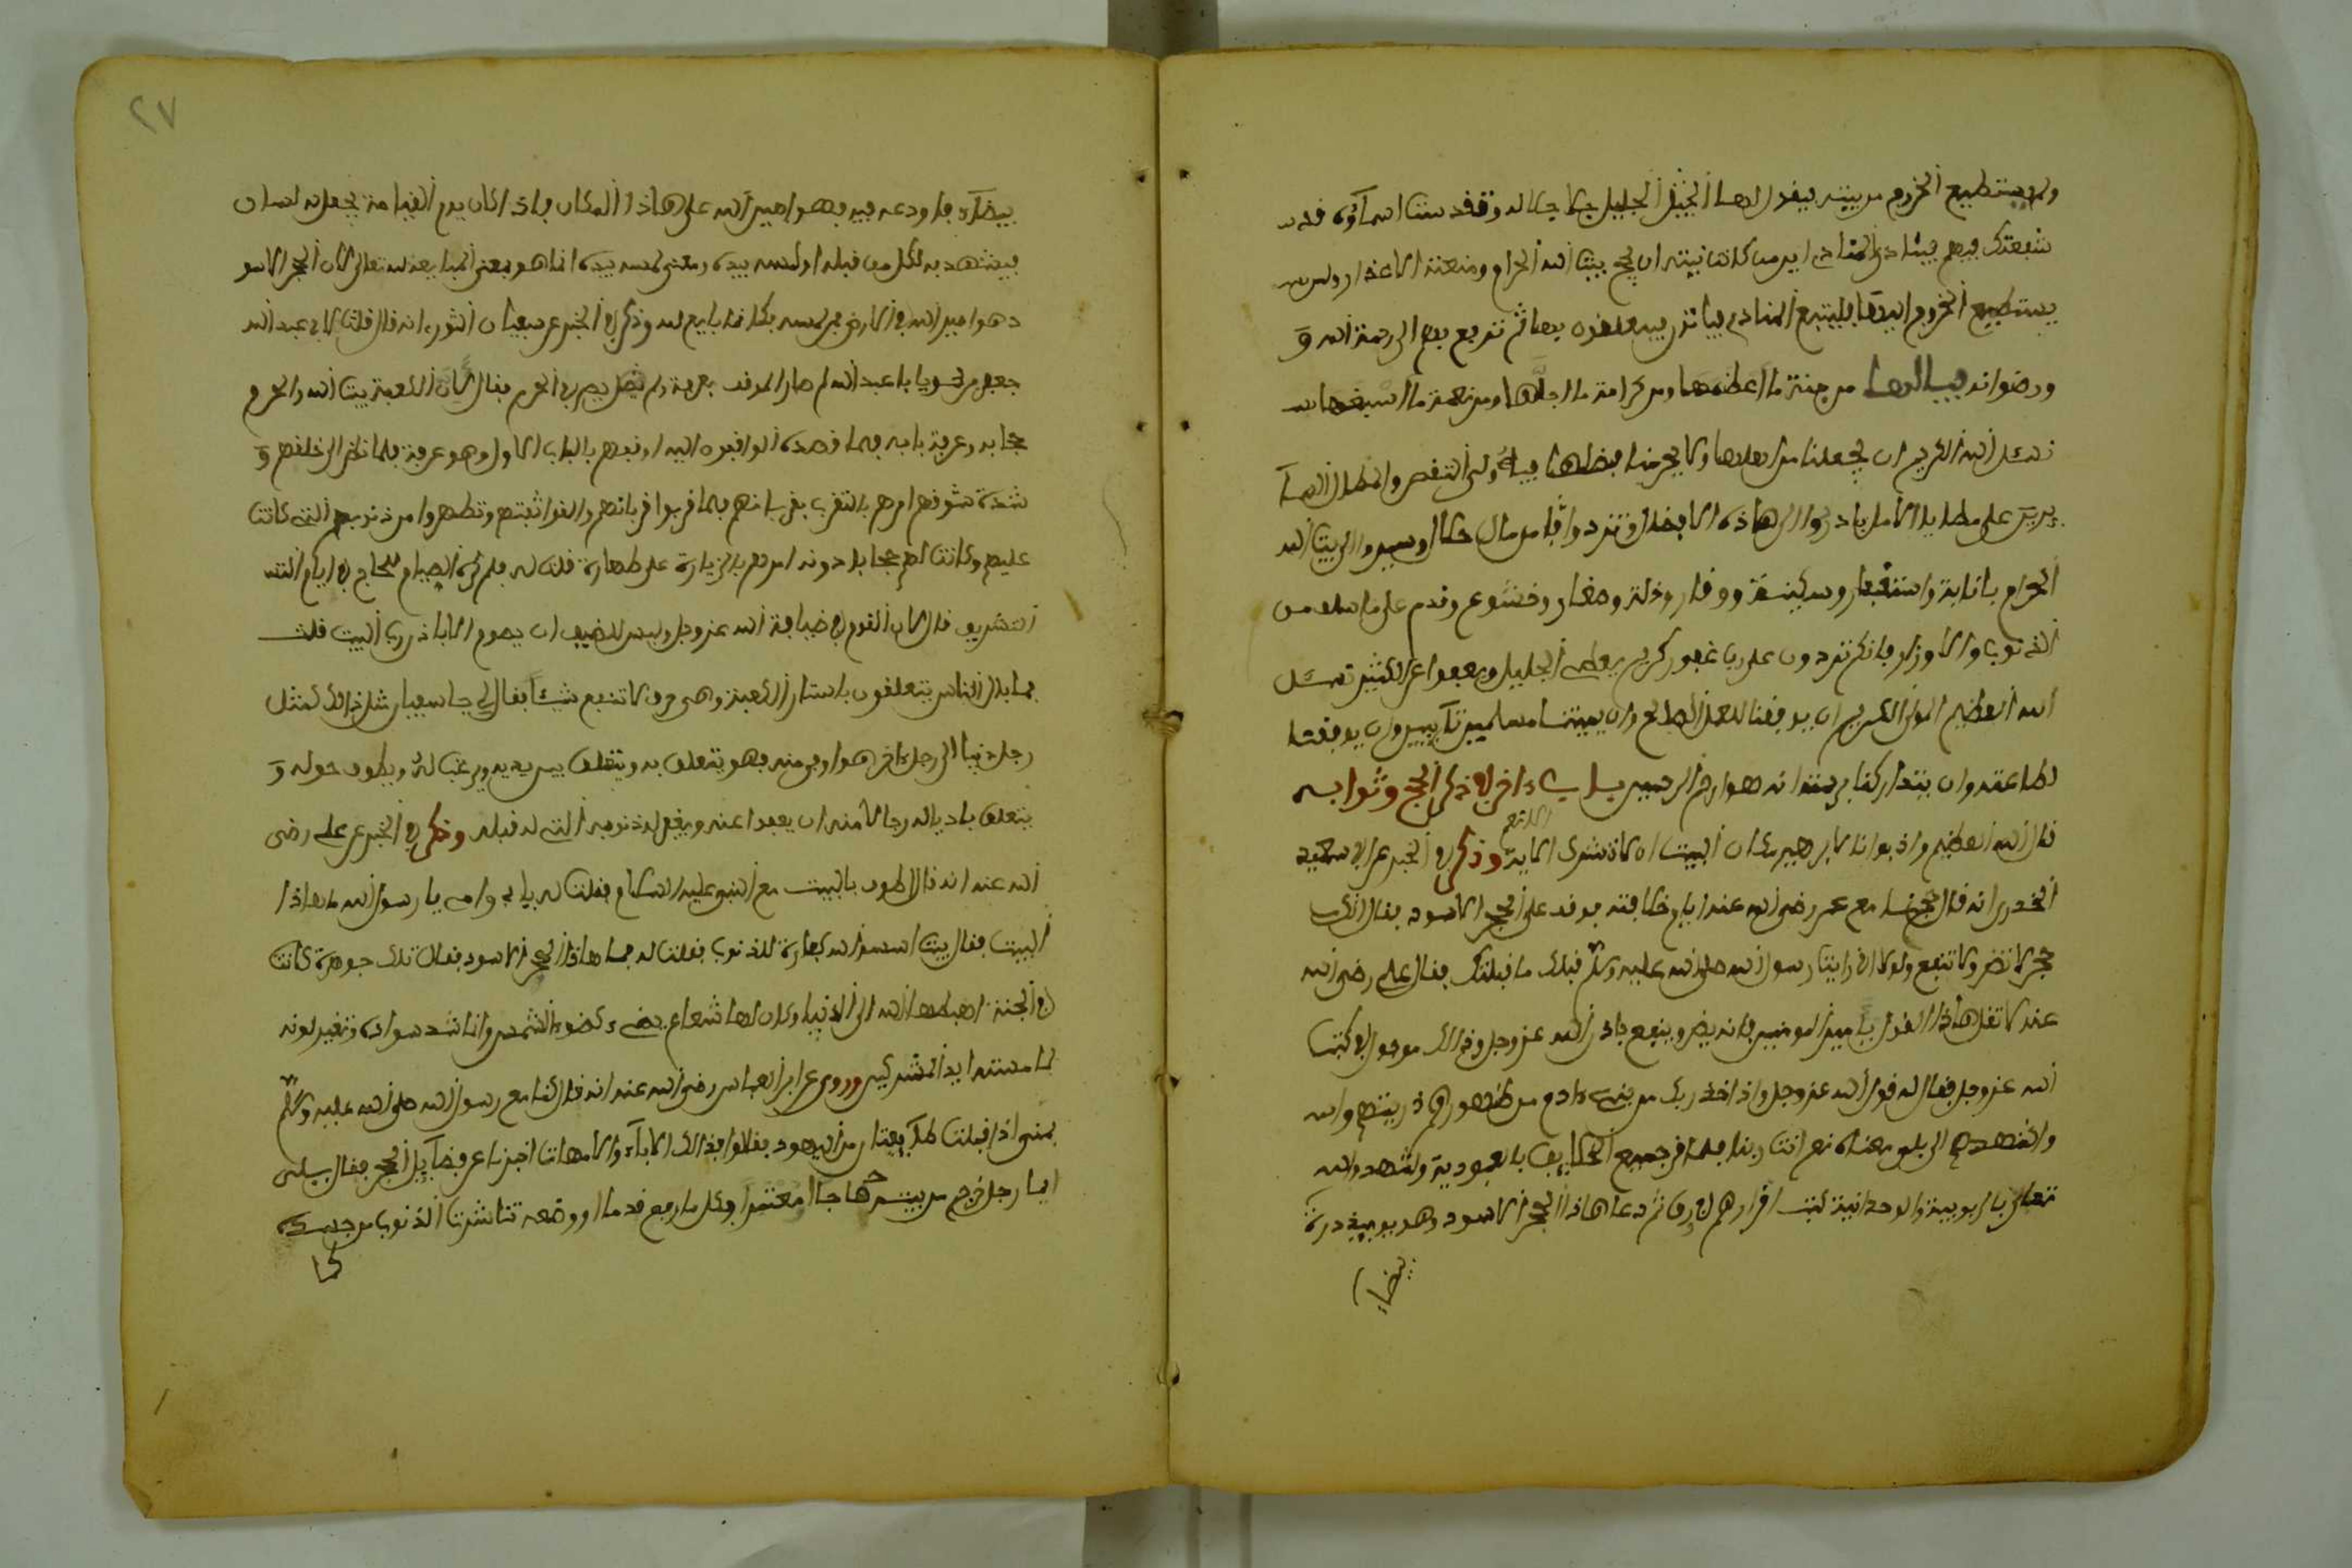 ولم يستطيع الخروج من بيته فيقول لها الجليل جل جلاله وقفت
شفعتك فيهم فينادي المنادي اين من كانت نيته ان يحج بيت الله الحرام ومنعته الاعذار ولم
يستطيع الخروج اليها فليتبع المنادي فياتون فيتعلقون بها ثم تدفع بهم الى رحمة الله و
ورضوانه فيالها من جنة ما اعظمها ومن كرامة ما اجلها ومن نعمة ما اسبغها
نسئل الله الكريم ان يجعلنا من اهلها ولا يحرمنا فضلها
على مطايا الامل بادروا الى هاذه الافضال وتزودوا من مال حلال وسيروا الى بيت الله
الحرام بانابة واستغفار وسكينة ووقار وذلة وصغار وخشوع وندم على ما سلف من
الذنوب والاوزار فانكم تردون على رب غفور كريم يعطي الجليل ويعفوا عن الكثير نسئل
الله العظيم المولى الكريم ان يوفقنا للعمل الصالح وان يميتنا مسلمين تآيبين وان يوفقنا
لطاعته وان يتداركنا برحمته انه هو ارحم الرحمين باب ءاخر في ذكر الحج وثوابه
قال الله العظيم واذ بوانا لابرهيم مكان البيت ان لا تشرك الاية وذكر في الخبر عن ابي سعيد
الخدري انه قال حججنا مع عمر رضي الله عنه اول خلافته فوقف على الحجر الاسود فقال انك
حجر لا تضر ولا تنفع ولولا اني رايت رسول الله صلى الله عليه وسلم قبلك ما قبلتك فقال علي رضي الله
عنه لا تقل هاذا القول يا امير المومنين فانه يضر وينفع باذن الله عز وجل وذالك موجود في كتب
الله عز وجل فقال له قول الله عز وجل واذ اخذ ربك من بني ءادم من ظهورهم ذريتهم وان
واشهدهم الى بلى معناه نعم انت ربنا فلما اقر جميع الخلايف بالعبودية ولشهدوا له
تعالى بالربوبية والوحدانية كتب اقرارهم في رق ثم دعا هاذا الحجر الاسود وهو يوميذ درة
بيضا
٢٧
بيضآء فاودعه فيه فهو امين الله على هاذا المكان فاذا كان يوم القيامة يجعل له لسان
فيشهد به لكل من قبله او لمسه بيده ومعنى لمسه بيده انما هو معنى المبايعة لله تعالى لان الحجر الاسو
د هو امين الله في الارض فمن لمسه فكانما بايع لله وذكر في الخبر عن سفيان الثوري انه قال قلت لابي عبد الله
جعفر بن محمد يا با عبد الله لم صار الموقف بعرفة ولم يصر في الحرم فقال لان الكعبة بيت الله والحرم
حجابه وعرفة بابه فلما قصده الوافدون اليه اوقفهم بالباب الاول وهو عرفة فلما نظر الى خلفهم و
شدة شوقهم امرهم بالتقرب بقربانهم فلما قربوا قربانهم والقوا تفثهم وتطهروا من ذنوبهم التي كانت
عليهم وكانت لهم حجابا دونه امرهم بالزيارة على طهارة قلت له فلم كره الصيام للحاج في ايام التشـ
التشريق قال لان القوم في ضيافة الله عز وجل وليس للضيف ان يصوم الا باذن رب البيت قلت
فما بال الناس يتعلقون باستار الكعبة وهي خرق لا تنفع شيئا فقال لي يا سفيان مثل ذالك كمثل
رجل جنا الى رجل ءاخر هو اوفى منه فهو يتعلق به ويتقلف بين يديه ويرغب له ويطوف حوله و
يتعلق باذياله رجا لامنه ان يعفوا عنه ويغفر له ذنوبه التي له قبله وذكر في الخبر عن علي رضي
الله عنه انه قال اطوف بالبيت مع النبي عليه السلام فقلت له بابي وامي يا رسول الله ما هاذا
البيت فقال بيت اسسه الله كفارة للذنوب فقلت له فما هاذا الحجر الاسود فقال تلك جوهرة كانت
في الجنة اهبطها الله الى الدنيا وكان لها شعاع يضيء كضوء الشمس وانما اشتد سواده وتغير لونه
لما مسته ايدي المشركين وروي عن ابن العباس رضي الله عنه انه قال كنا مع رسول الله صلى الله عليه وسلم
بمنى اذ اقبلت طآيفتان من اليهود فقالوا فداك الاباء والامهات اخبرنا عن فضآيل الحج فقال بلى
ايما رجل خرج من بيته حاجا او معتمرا فكل ما رفع قدما او وضعه تناثرت الذنوب من جسده
كما